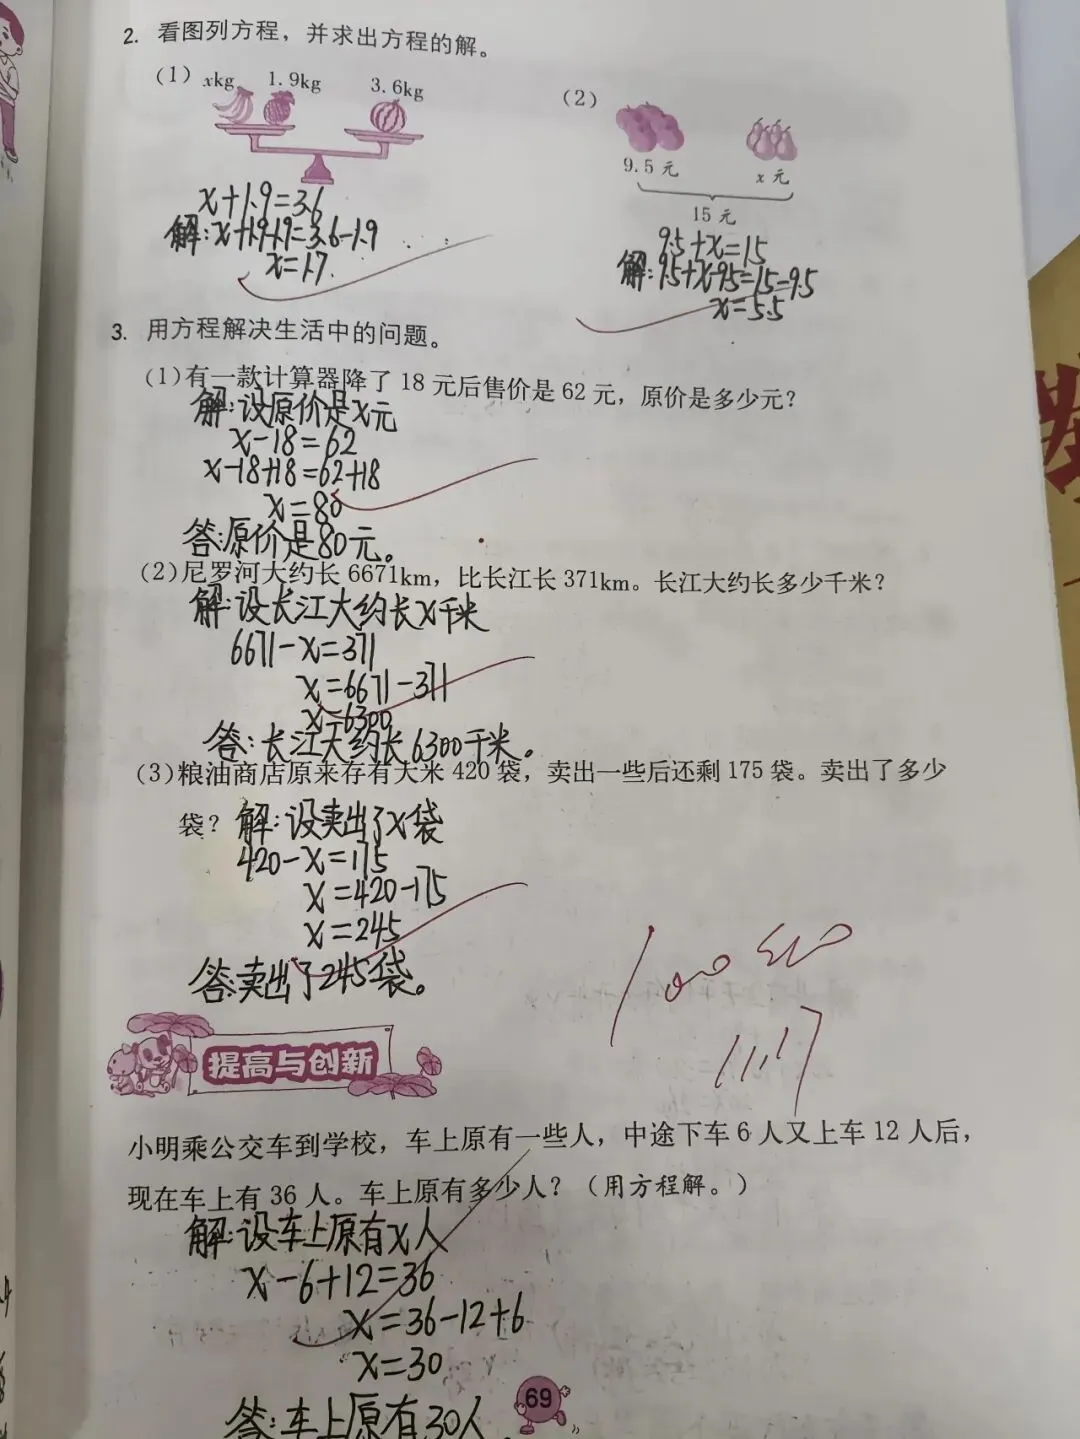 2. 看图列方程，并求出方程的解。
(1) xkg 1.9kg 3.6kg
x+1.9=3.6
解:x+1.9-1.9=3.6-1.9
x=1.7
(2)
9.5元 x元
15元
9.5+x=15
解:9.5+x-9.5=15-9.5
x=5.5
3. 用方程解决生活中的问题。
(1)有一款计算器降了 18 元后售价是 62 元，原价是多少元？
解:设原价是x元
x-18=62
x-18+18=62+18
x=80
答:原价是80元。
(2)尼罗河大约长 6671km，比长江长 371km。长江大约长多少千米？
解:设长江大约长x千米
6671-x=371
x=6671-371
x=6300
答:长江大约长6300千米。
(3)粮油商店原来存有大米 420 袋，卖出一些后还剩 175 袋。卖出了多少
袋？ 解:设卖出了x袋
420-x=175
x=420-175
x=245
答:卖出了245袋。
提高与创新
小明乘公交车到学校，车上原有一些人，中途下车 6 人又上车 12 人后，
现在车上有 36 人。车上原有多少人？（用方程解。）
解:设车上原有x人
x-6+12=36
x=36-12+6
x=30
答:车上原有30人.
69